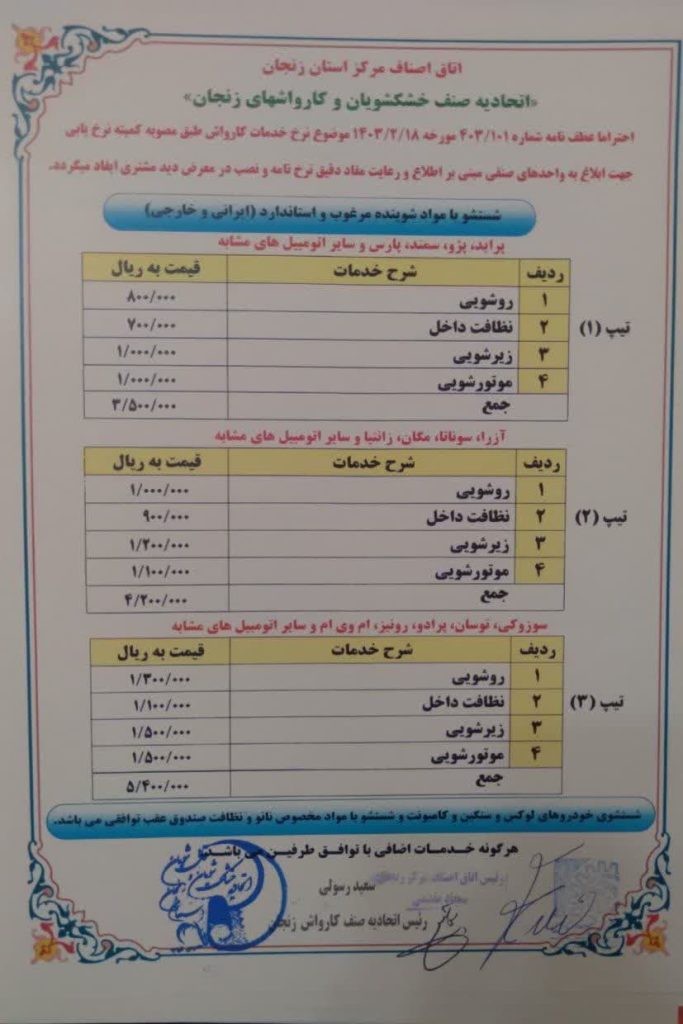 اتاق اصناف مرکز استان زنجان
«اتحادیه صنف خشکشویان و کارواشهای زنجان»
احتراما عطف نامه شماره ۴۰۳/۱۰۱ مورخه ۱۴۰۳/۲/۱۸ موضوع نرخ خدمات کارواش طبق مصوبه کمیته نرخ یابی
جهت ابلاغ به واحدهای صنفی مبنی بر اطلاع و رعایت مفاد دقیق نرخ نامه و نصب در معرض دید مشتری ایفاد میگردد.
شستشو با مواد شوینده مرغوب و استاندارد (ایرانی و خارجی)
پراید، پژو، سمند، پارس و سایر اتومبیل های مشابه
ردیف شرح خدمات قیمت به ریال
۱ روشویی ۸۰۰/۰۰۰
۲ نظافت داخل ۷۰۰/۰۰۰
تیپ (۱)
۳ زیرشویی ۱/۰۰۰/۰۰۰
۴ موتورشویی ۱/۰۰۰/۰۰۰
جمع ۳/۵۰۰/۰۰۰
آزرا، سوناتا، مگان، زانتیا و سایر اتومبیل های مشابه
ردیف شرح خدمات قیمت به ریال
۱ روشویی ۱/۰۰۰/۰۰۰
۲ نظافت داخل ۹۰۰/۰۰۰
تیپ (۲)
۳ زیرشویی ۱/۲۰۰/۰۰۰
۴ موتورشویی ۱/۱۰۰/۰۰۰
جمع ۴/۲۰۰/۰۰۰
سوزوکی، توسان، پرادو، رونیز، ام وی ام و سایر اتومبیل های مشابه
ردیف شرح خدمات قیمت به ریال
۱ روشویی ۱/۳۰۰/۰۰۰
۲ نظافت داخل ۱/۱۰۰/۰۰۰
تیپ (۳)
۳ زیرشویی ۱/۵۰۰/۰۰۰
۴ موتورشویی ۱/۵۰۰/۰۰۰
جمع ۵/۴۰۰/۰۰۰
شستشوی خودروهای لوکس و سنگین و کامیونت و شستشو با مواد مخصوص نانو و نظافت صندوق عقب توافقی می باشد.
هرگونه خدمات اضافی با توافق طرفین می باشد.
رئیس اتاق اصناف مرکز زنجان
سعید رسولی
رئیس اتحادیه صنف کارواش زنجان